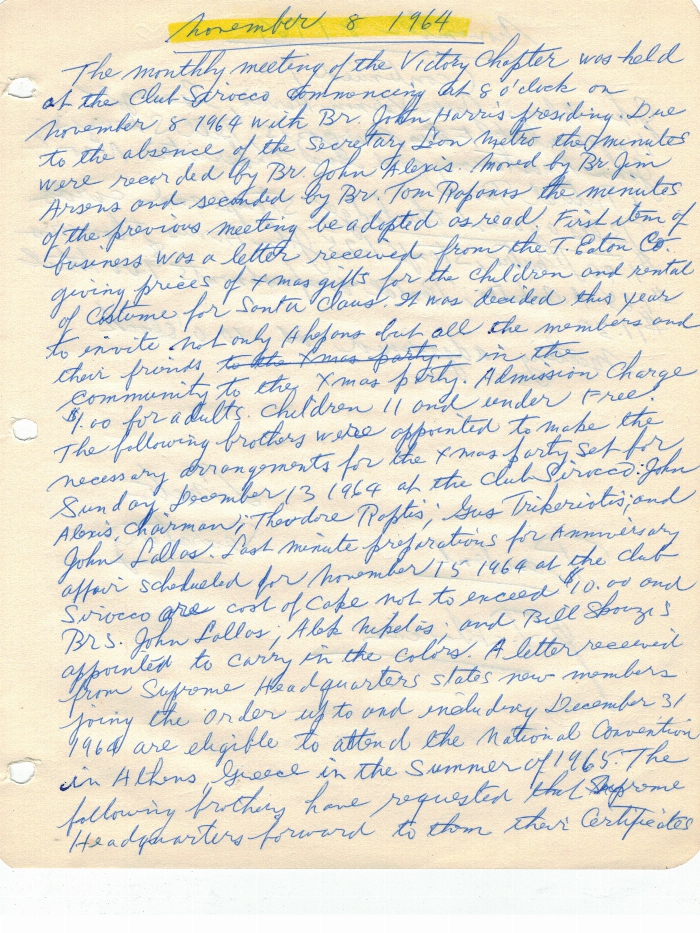 November 8 1964
The monthly meeting of the Victory Chapter was held
at the Club Sirocco commencing at 8 o'clock on
November 8 1964 with Br. John Harris presiding. Due
to the absence of the Secretary Leon Metro the minutes
were recorded by Br. John Alexis. Moved by Br. Jim
Arsens and seconded by Br. Tom Rapanos the minutes
of the previous meeting be adopted as read. First item of
business was a letter received from the T. Eaton Co
giving prices of Xmas gifts for the children and rental
of Costume for Santa Claus. It was decided this year
to invite not only Ahepans but all the members and
their friends, to the Xmas party in the
community to the Xmas party. Admission Charge
$1.00 for adults. Children 11 and under Free.
The following brothers were appointed to make the
necessary arrangements for the Xmas party set for
Sunday December 13 1964 at the Club Sirocco: John
Alexis, Chairman; Theodore Raptis; Gus Trikeriotis; and
John Lallas. Last minute preparations for Anniversary
affair scheduled for November 15 1964 at the Club
Sirocco are cost of Cake not to exceed $10.00 and
Brs. John Lallas; Alek Nikelas; and Bill
appointed to carry in the colors. A letter received
from Supreme Headquarters states new members
joining the Order up to and including December 31
1964 are eligible to attend the National Convention
in Athens Greece in the Summer of 1965. The
following brothers have requested that Supreme
Headquarters forward to them their Certificates